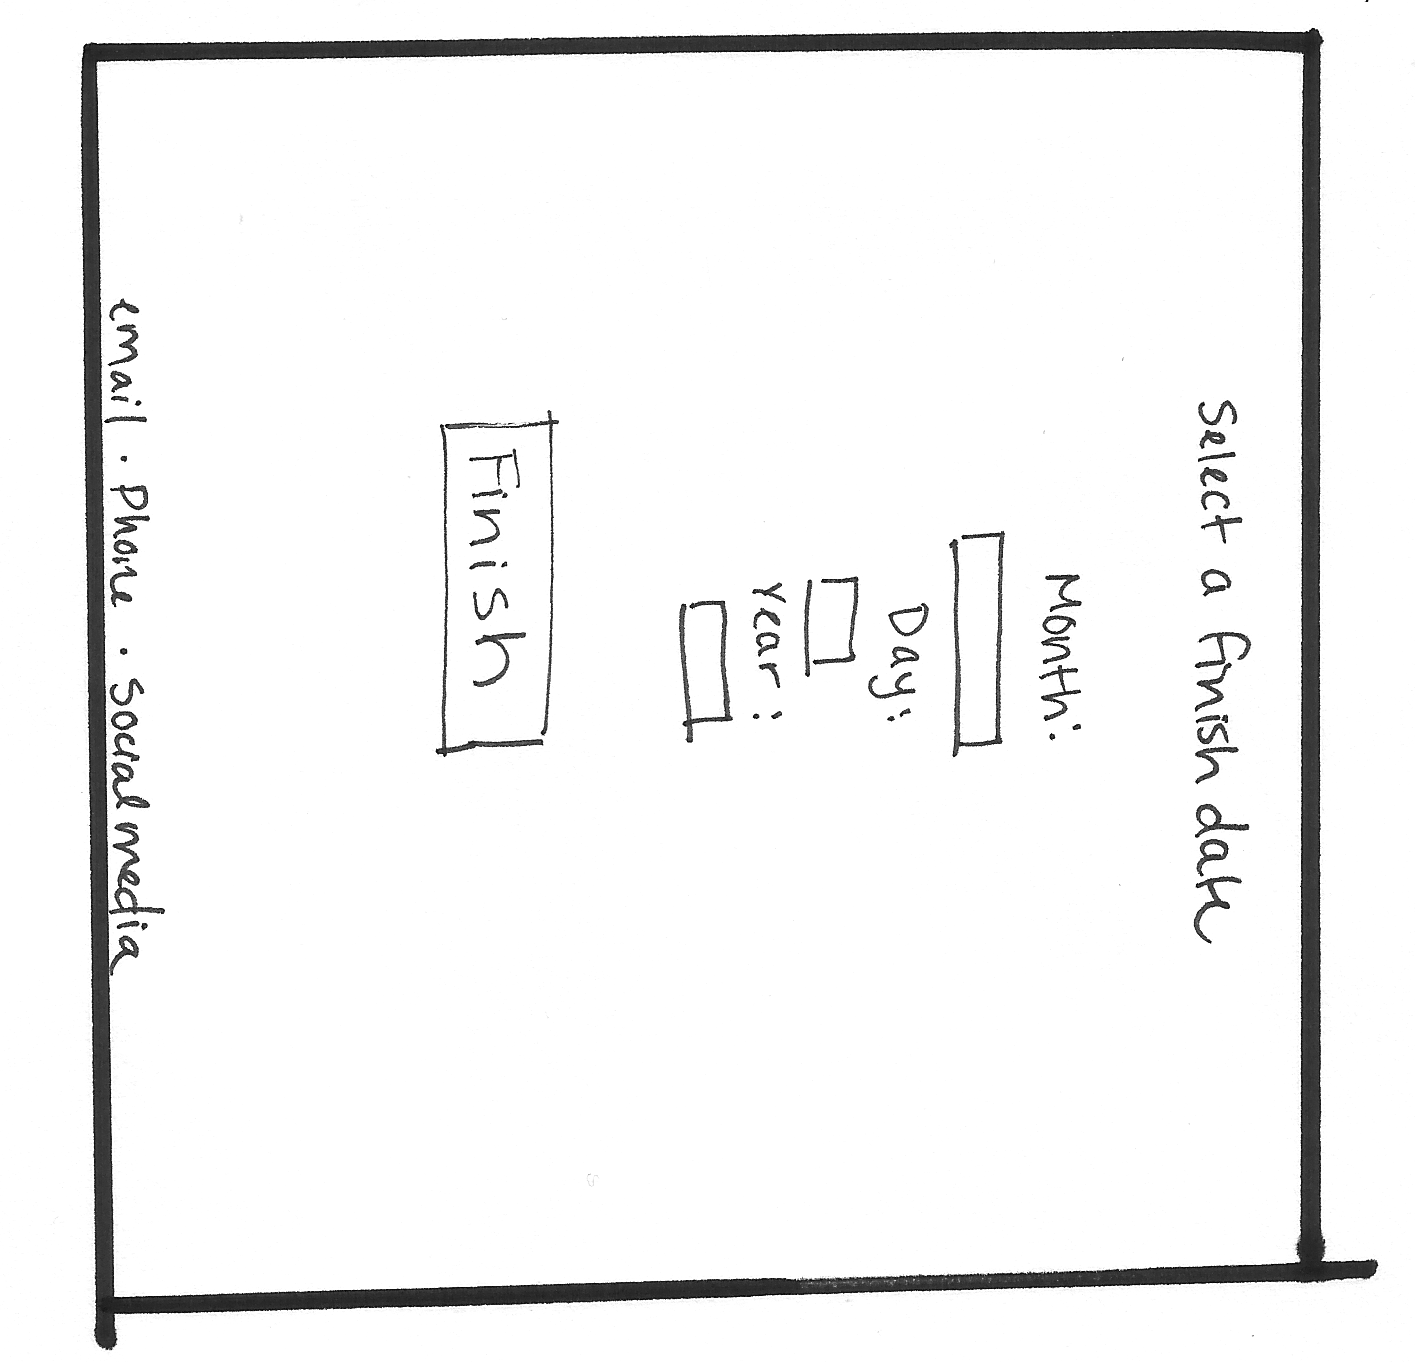 Select a finish date
Month:
Day:
Year:
Finish
email . Phone . Social media